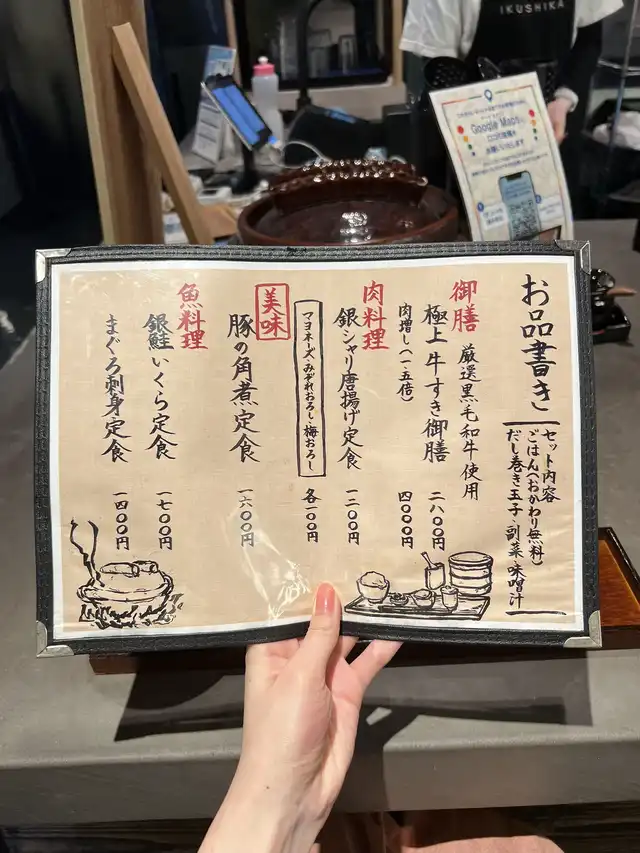 お品書き
セット内容
ごはん(おかわり無料)
だし巻き玉子、副菜、味噌汁
御膳 厳選黒毛和牛使用
極上 牛すき御膳 二八〇〇円
肉増し(一・五倍) 四〇〇〇円
肉料理
銀シャリ唐揚げ定食 一二〇〇円
マヨネーズ・みぞれおろし・梅おろし 各一〇〇円
美味
豚の角煮定食 一六〇〇円
魚料理
銀鮭いくら定食 一七〇〇円
まぐろ刺身定食 一四〇〇円
IKUSHIKA
Google Maps